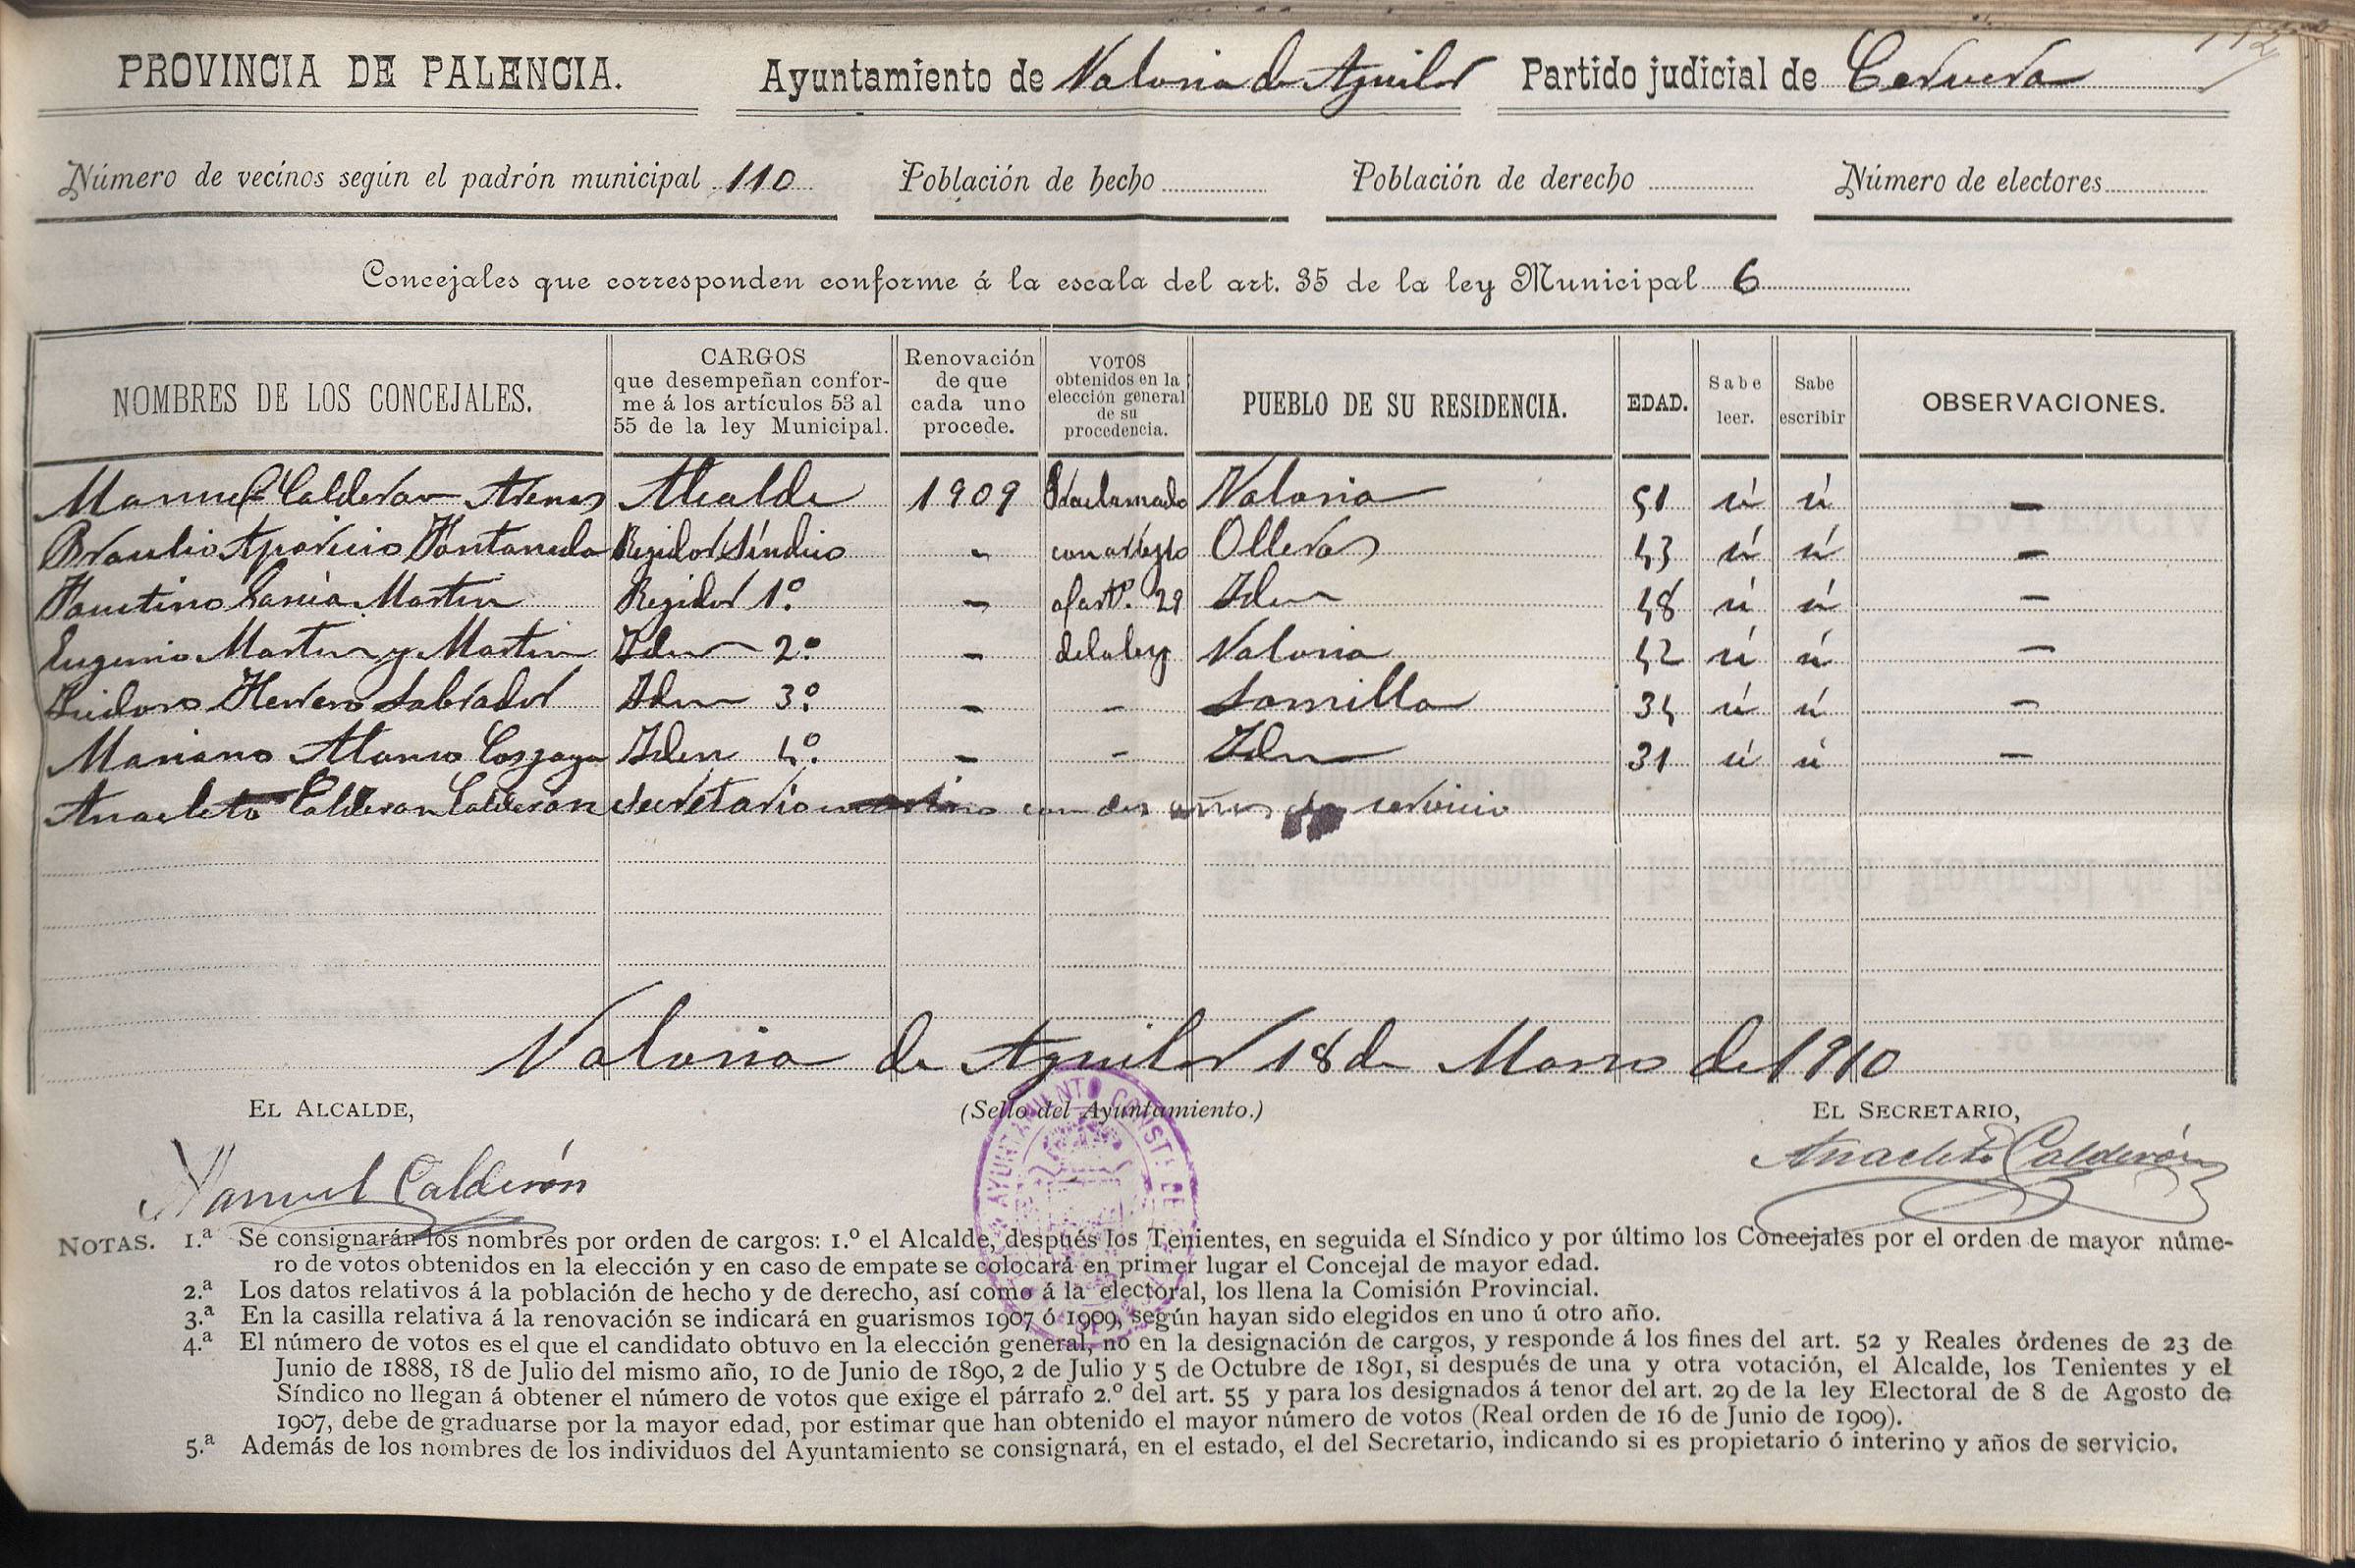 112
PROVINCIA DE PALENCIA. Ayuntamiento de Valoria de Aguilar Partido judicial de Cervera
Número de vecinos según el padrón municipal 110 Población de hecho Población de derecho Número de electores
Concejales que corresponden conforme á la escala del art. 35 de la ley Municipal 6
NOMBRES DE LOS CONCEJALES. CARGOS que desempeñan confor-me á los artículos 53 al 55 de la ley Municipal. Renovación de que cada uno procede. VOTOS obtenidos en la elección general de su procedencia. PUEBLO DE SU RESIDENCIA. EDAD. Sabe leer. Sabe escribir OBSERVACIONES.
Manuel Calderon Arenas Alcalde 1909 Proclamado Valoria 51 sí sí —
Braulio Aparicio Fontaneda Regidor Síndico - con arreglo Olleros 43 sí sí —
Faustino García Martin Regidor 1º. - al artº. 29 Idem 48 sí sí —
Eugenio Martin y Martin Idem 2º - de la ley Valoria 42 sí sí —
Isidoro Herrero Labrador Idem 3º - - Lomilla 34 sí sí —
Mariano Alonso Idem 4º. - - Idem 31 sí sí —
Anacleto Calderon Calderon secretario con dos años de servicio
Valoria de Aguilar 18 de Marzo de 1910
EL ALCALDE, (Sello del Ayuntamiento.) EL SECRETARIO,
AYUNTAMIENTO CONST. DE
Manuel Calderón Anacleto Calderón
NOTAS. 1.ª Se consignarán los nombres por orden de cargos: 1.º el Alcalde, después los Tenientes, en seguida el Síndico y por último los Concejales por el orden de mayor núme-
ro de votos obtenidos en la elección y en caso de empate se colocará en primer lugar el Concejal de mayor edad.
2.ª Los datos relativos á la población de hecho y de derecho, así como á la electoral, los llena la Comisión Provincial.
3.ª En la casilla relativa á la renovación se indicará en guarismos 1907 ó 1909, según hayan sido elegidos en uno ú otro año.
4.ª El número de votos es el que el candidato obtuvo en la elección general, no en la designación de cargos, y responde á los fines del art. 52 y Reales órdenes de 23 de
Junio de 1888, 18 de Julio del mismo año, 10 de Junio de 1890, 2 de Julio y 5 de Octubre de 1891, si después de una y otra votación, el Alcalde, los Tenientes y el
Síndico no llegan á obtener el número de votos que exige el párrafo 2.º del art. 55 y para los designados á tenor del art. 29 de la ley Electoral de 8 de Agosto de
1907, debe de graduarse por la mayor edad, por estimar que han obtenido el mayor número de votos (Real orden de 16 de Junio de 1909).
5.ª Además de los nombres de los individuos del Ayuntamiento se consignará, en el estado, el del Secretario, indicando si es propietario ó interino y años de servicio.